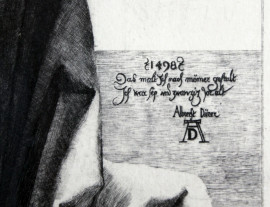 1498
Das malt Ich nach meiner gestalt
Ich war sex und zwenzig Jor alt
Albrecht Dürer
AD